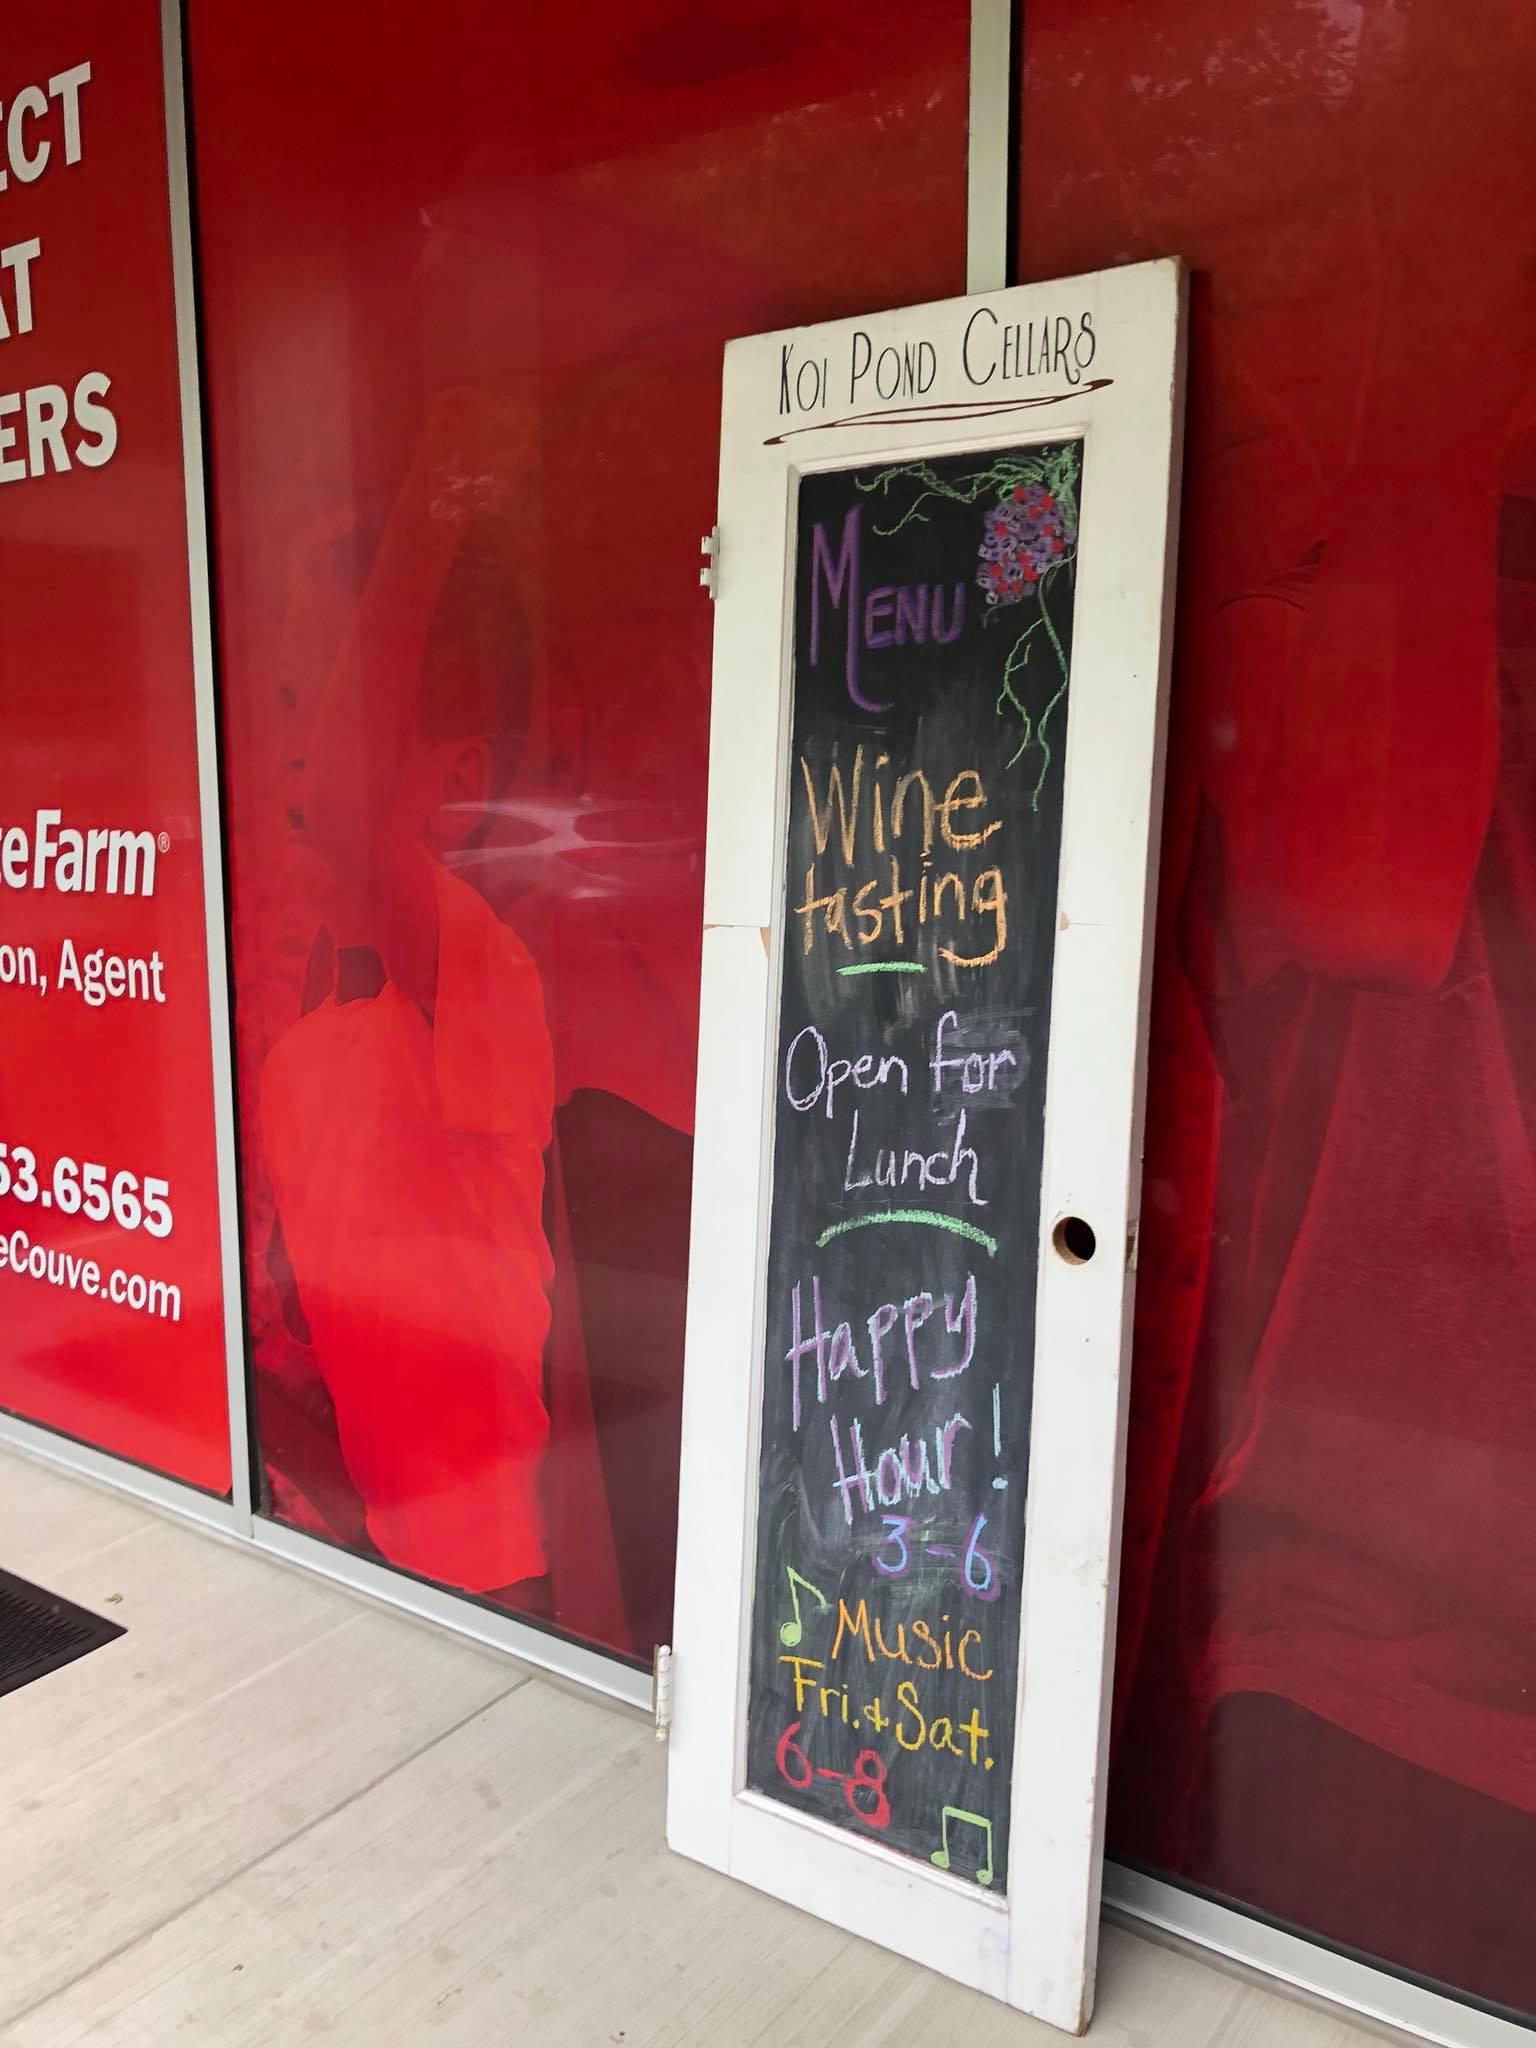 ECT
AT
ERS
teFarm®
on, Agent
53.6565
eCouve.com
KOI POND CELLARS
MENU
Wine
tasting
Open for
Lunch
Happy
Hour!
3-6
Music
Fri. & Sat.
6-8